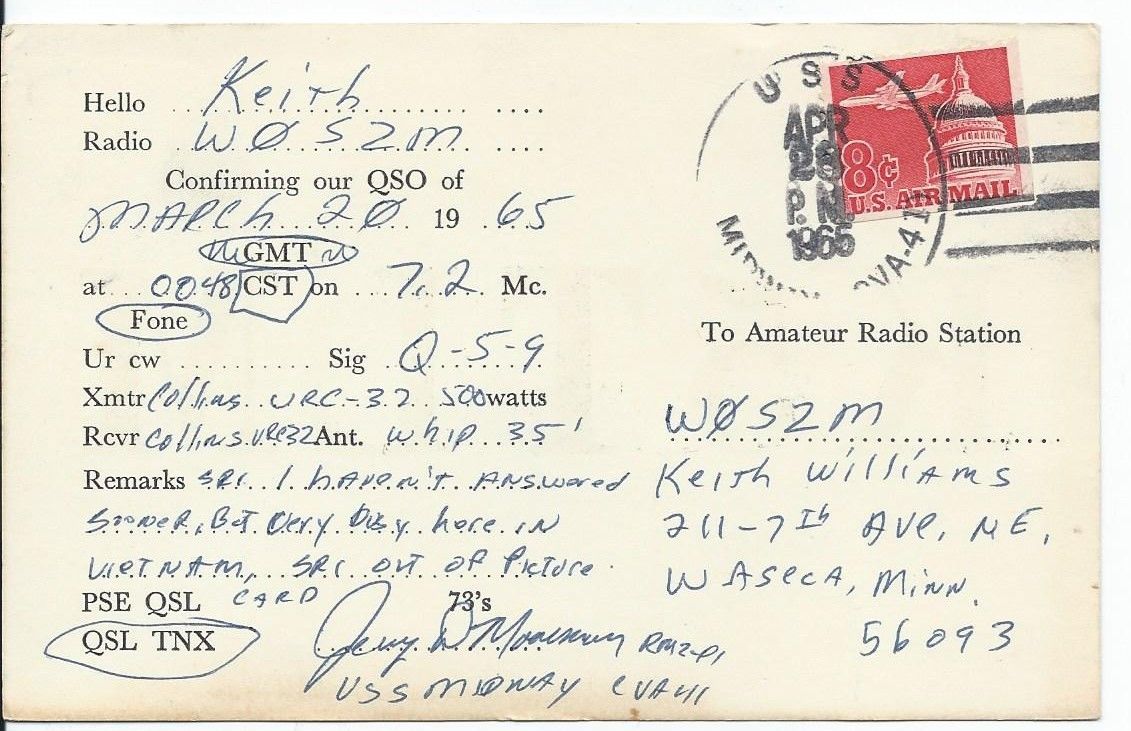 Hello Keith
Radio WØSZM
Confirming our QSO of
MARCH 20 1965
GMT
at 0048 CST on 7.2 Mc.
Fone
Ur cw Sig Q-5-9
Xmtr Collins URC-32 500 watts
Rcvr Collins URC32 Ant. whip 35'
Remarks SRI I haven't answered
sooner, But Very Busy here in
VIETNAM, SRI out of Picture
PSE QSL CARD 73's
QSL TNX Jerry D.
USS MIDWAY CVA41
USS
APR
28
P.M.
1965
CVA-41
8¢
U.S. AIR MAIL
To Amateur Radio Station
WØSZM
Keith Williams
211-7th Ave, NE,
WASECA, Minn.
56093